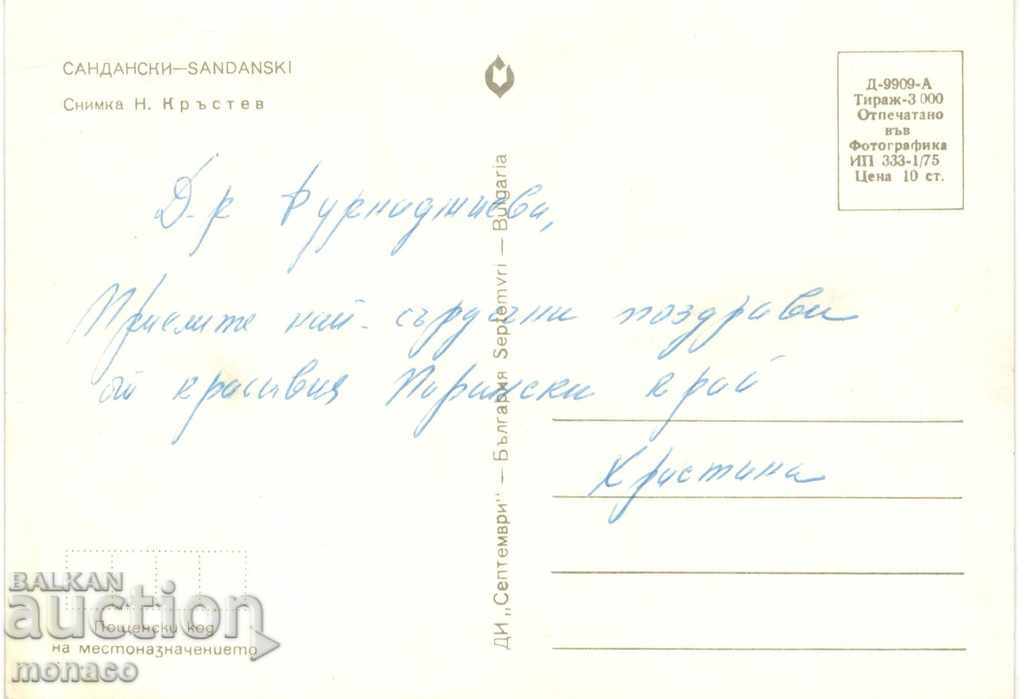 САНДАНСКИ—SANDANSKI
Снимка Н. Кръстев
Д-9909-А
Тираж-3 000
Отпечатано
във
Фотографика
ИП 333-1/75
Цена 10 ст.
Д-р Фурнаджиева,
Приемите най-сърдечни поздрави
от красивия Пирински край
Христина
ДИ „Септември" — България Septemvri — Bulgaria
Пощенски код
на местоназначението
BALKAN
auction
monaco